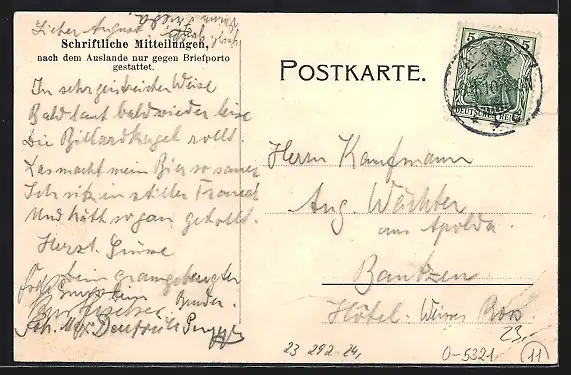 Lieber August
Schriftliche Mitteilungen,
nach dem Auslande nur gegen Briefporto
gestattet.
POSTKARTE.
In sehr geistreicher Weise
Bald laut bald wieder leise
Die Billardkugel rollt.
Das macht mein Bier so sauer
Ich sitz in stiller Trauer
Und hätt so gern getollt.
Herzl. Grüsse
Dein gramgebeugter
Bruder.
Herrn Kaufmann
Aug. Wächter
aus Apolda
Bautzen
Hôtel Weisses Ross
5 5
DEUTSCHES REICH
23 292 24,
0-5321
23,-
11